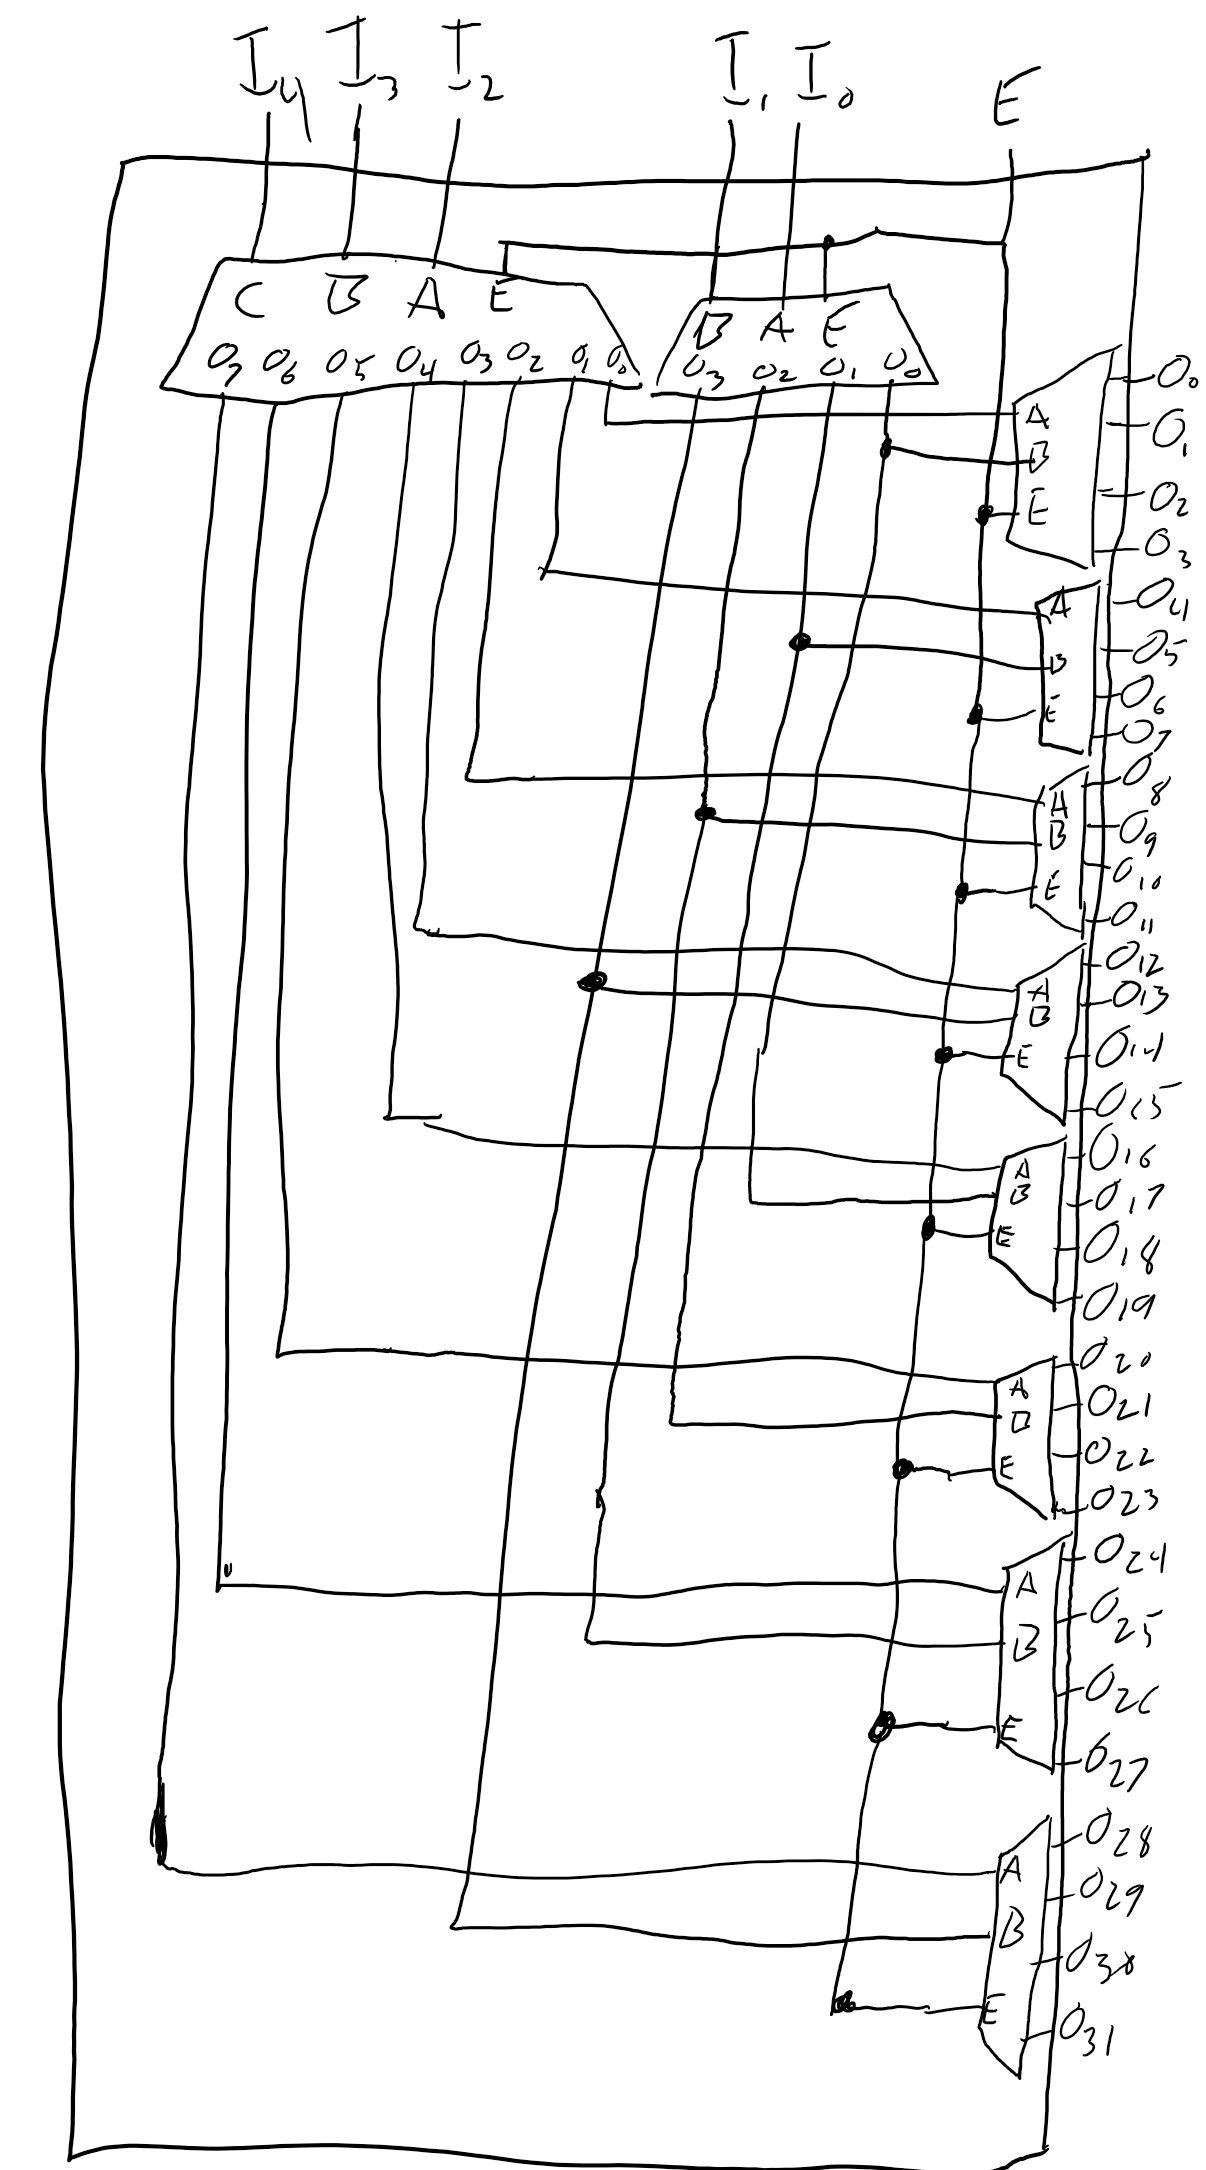 I4 I3 I2 I1 I0 E
C B A E
B A E
O7 O6 O5 O4 O3 O2 O1 O0
O3 O2 O1 O0
A
B
E
O0
O1
O2
O3
A
B
E
O4
O5
O6
O7
A
B
E
O8
O9
O10
O11
A
B
E
O12
O13
O14
O15
A
B
E
O16
O17
O18
O19
A
B
E
O20
O21
O22
O23
A
B
E
O24
O25
O26
O27
A
B
E
O28
O29
O30
O31